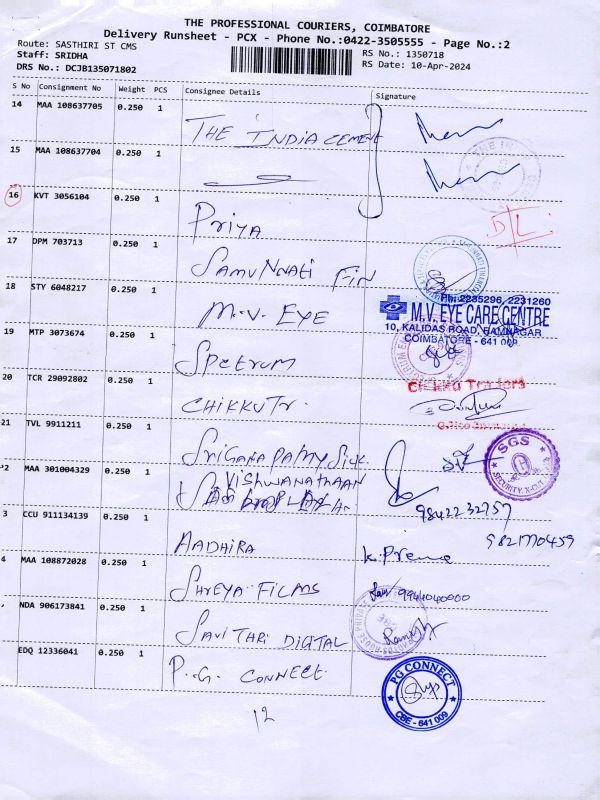 THE PROFESSIONAL COURIERS, COIMBATORE
Delivery Runsheet - PCX - Phone No.:0422-3505555 - Page No.:2
Route: SASTHIRI ST CMS
RS No.: 1350718
Staff: SRIDHA
RS Date: 10-Apr-2024
DRS No.: DCJB135071802
S No Consignment No Weight PCS Consignee Details Signature
14 MAA 108637705 0.250 1 THE INDIA CEMENT
15 MAA 108637704 0.250 1
16 KVT 3056104 0.250 1 Priya
17 DPM 703713 0.250 1 SAMUNNati FIN
18 STY 6048217 0.250 1 M.V. EYE
Ph: 2235296, 2231260
M.V. EYE CARE CENTRE
10, KALIDAS ROAD, RAMNAGAR
COIMBATORE - 641 009.
19 MTP 3073674 0.250 1 SPETRUM
20 TCR 29092802 0.250 1 CHIKKU Tr.
Chikku Traders
21 TVL 9911211 0.250 1 SriGanaPathy Silk
SGS
SECURITY. X-O.T.
2 MAA 301004329 0.250 1 VISHWANATHAAN
9842232757
9821770459
3 CCU 911134139 0.250 1 AADHIRA K. Prema
4 MAA 108872028 0.250 1 SHREYA FILMS 9944040000
NDA 906173841 0.250 1 SAVITARI DIGITAL Ramesh
EDQ 12336041 0.250 1 P.G. CONNECT
PG CONNECT
CBE - 641 009
12